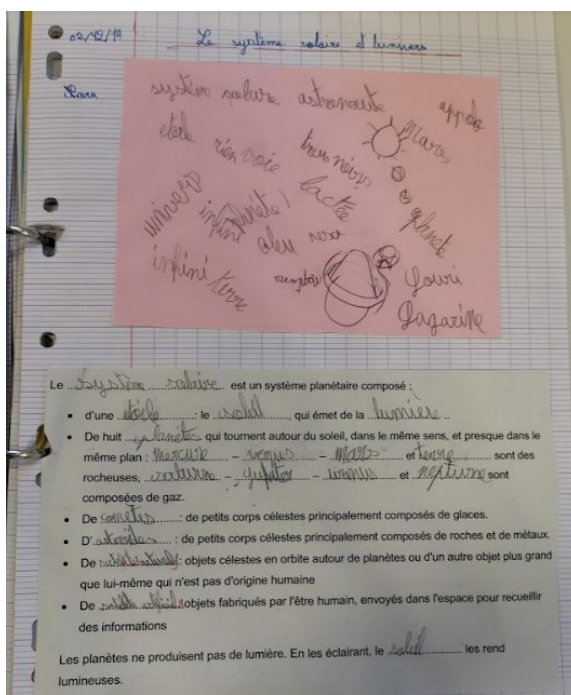 02/12/19
Le système solaire et l'univers
systèm solaire astronaute
Mars
etoile rien voie trous noirs
lactée
univers infini
planète
infini terre
Youri
Gagarine
Le système solaire est un système planétaire composé :
• d'une etoile : le soleil , qui émet de la lumière
• De huit planètes qui tournent autour du soleil, dans le même sens, et presque dans le
même plan : mercure – venus – Mars et terre sont des
rocheuses, saturne – jupiter – uranus et neptune sont
composées de gaz.
• De comètes : de petits corps célestes principalement composés de glaces.
• D' asteroides : de petits corps célestes principalement composés de roches et de métaux.
• De satellites naturels : objets célestes en orbite autour de planètes ou d'un autre objet plus grand
que lui-même qui n'est pas d'origine humaine
• De : objets fabriqués par l'être humain, envoyés dans l'espace pour recueillir
des informations
Les planètes ne produisent pas de lumière. En les éclairant, le soleil les rend
lumineuses.